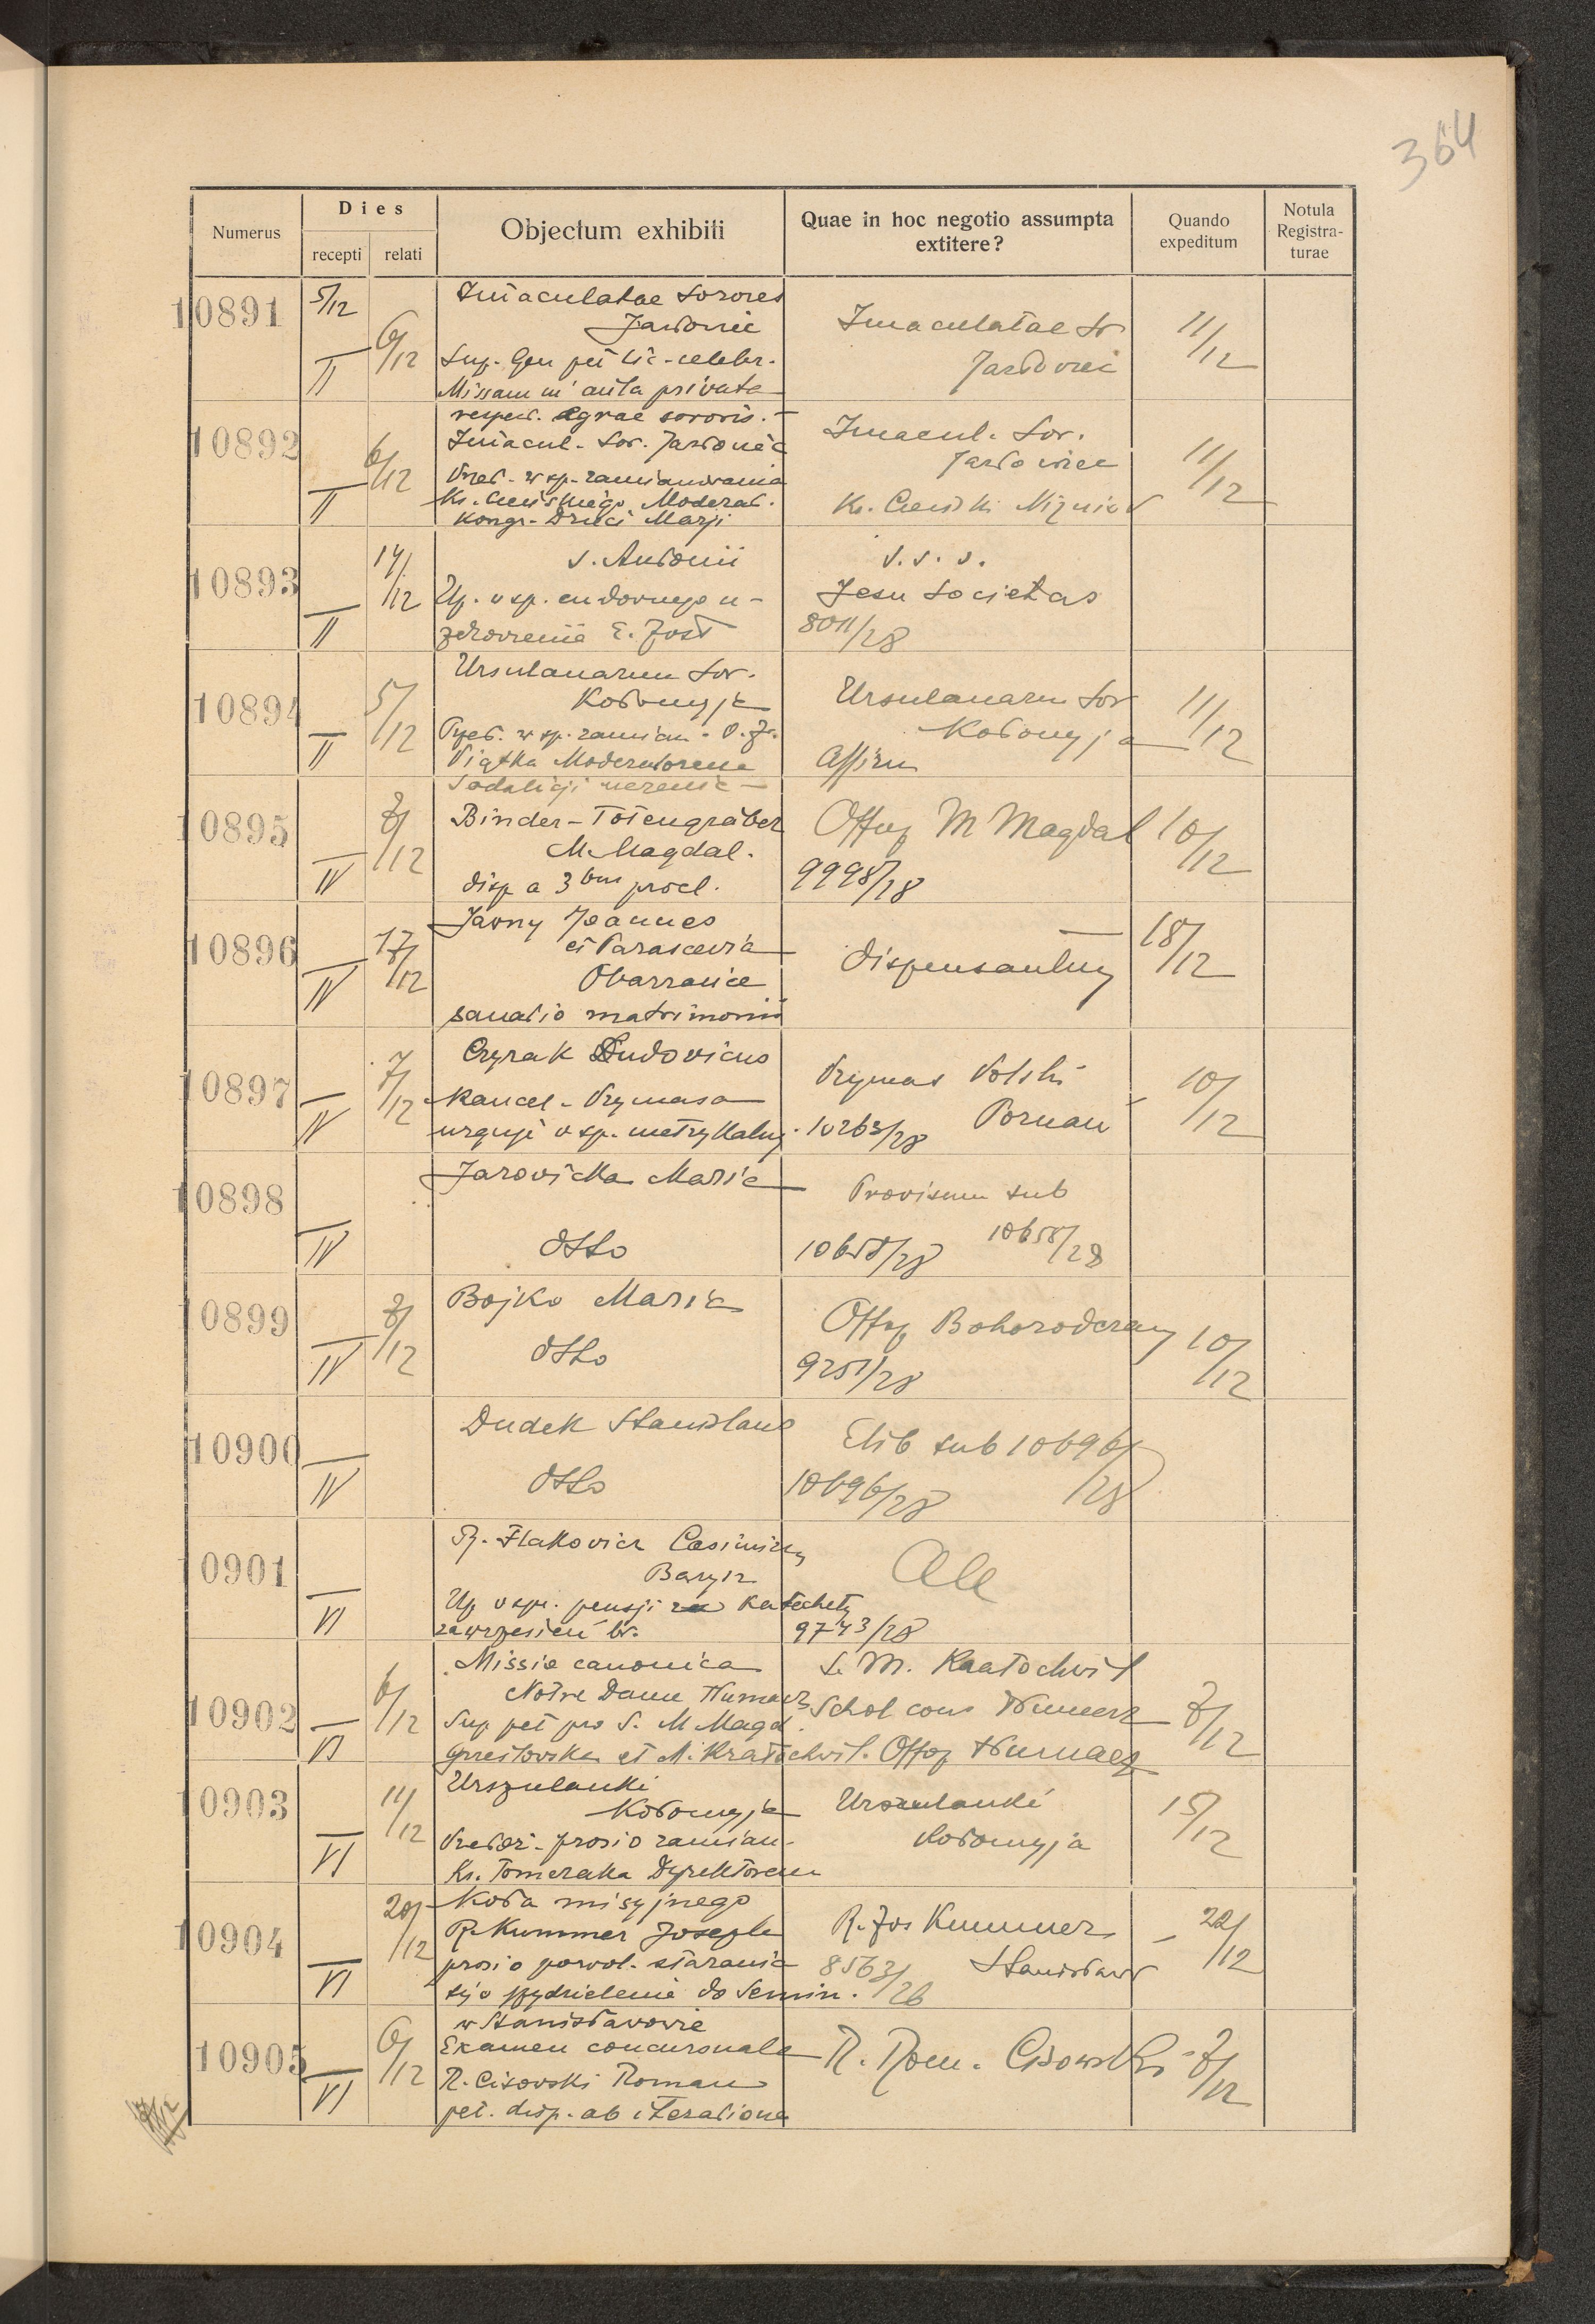 364
Numerus
Dies
recepti
relati
Objectum exhibiti
Quae in hoc negotio assumpta
extitere?
Quando
expeditum
Notula
Registra-
turae
10891
5/12
II
6/12
Imaculatae Sorores
Jazłowiec
Sup. Gen pet lic. celebr.
Missam in aula privata
respect. aegrae sororis.
Imaculatae Sr
Jazłowiec
11/12
10892
II
6/12
Imacul. Sor. Jazłowiec
Przeł. w sp. zamianowania
Ks. Moderat.
Kongr. Dzieci Marji
Imacul. Sor.
Jazłowiec
Ks. Nizniów
11/12
10893
II
14/12
S. Antonii
Up. w sp. cudownego u-
zdrowienia E. Jost
S. S. S.
Jesu Societas
8011/28
10894
II
5/12
Ursulanarum Sor.
Kołomyja
Przeł. w sp. zamian. O. Jo.
Piątka Moderatorem
Sodalicji uczenic
Ursulanarum Sor
Kołomyja
Affirm
11/12
10895
IV
8/12
Binder - Totengräber
M. Magdal.
disp a 3bus procl.
Offoq M Magdal
9998/28
10/12
10896
IV
17/12
Jawny Joannes
et Parascevia
Obarzance
sanatio matrimonii
Dispensantur
18/12
10897
IV
7/12
Czyrak Ludovicus
Kancel. Prymasa
urguje w sp. metrykalnej
Prymas Polski
Poznań
10263/28
10/12
10898
IV
Jarowicka Maria
dtto
Provisum sub
10658/28
10658/28
10899
IV
8/12
Bojko Maria
dtto
Offoq Bohorodczany
9251/28
10/12
10900
IV
Dudek Stanislaus
dtto
Elib sub 10696/28
10696/28
10901
VI
R. Flakowicz Casimirus
Barysz
Up w spr. pensji za katechetę
za wrzesień br.
Ale
9743/28
10902
VI
6/12
Missio canonica
Notre Dame Tłumacz
Sup pet pro S. M Magd.
et M. Kratochwil.
S. M. Kratochwil
Schol cons Tłumacz
Offoq Tłumacz
8/12
10903
VI
14/12
Urszulanki
Kołomyja
Przełoż. prosi o zamian.
Ks. Tomczaka Dyrektorem
Koła misyjnego
Urszulanki
Kołomyja
15/12
10904
VI
20/12
R. Kummer Joseph
prosi o pozwol. starania
się o przydzielenie do Semin.
w Stanisławowie
R. Jos Kummer
Stanisławów
8563/26
22/12
10905
VI
6/12
Examen concursuale
R. Cisowski Roman
pet. disp. ab iteratione
R. Rom. Cisowski
8/12